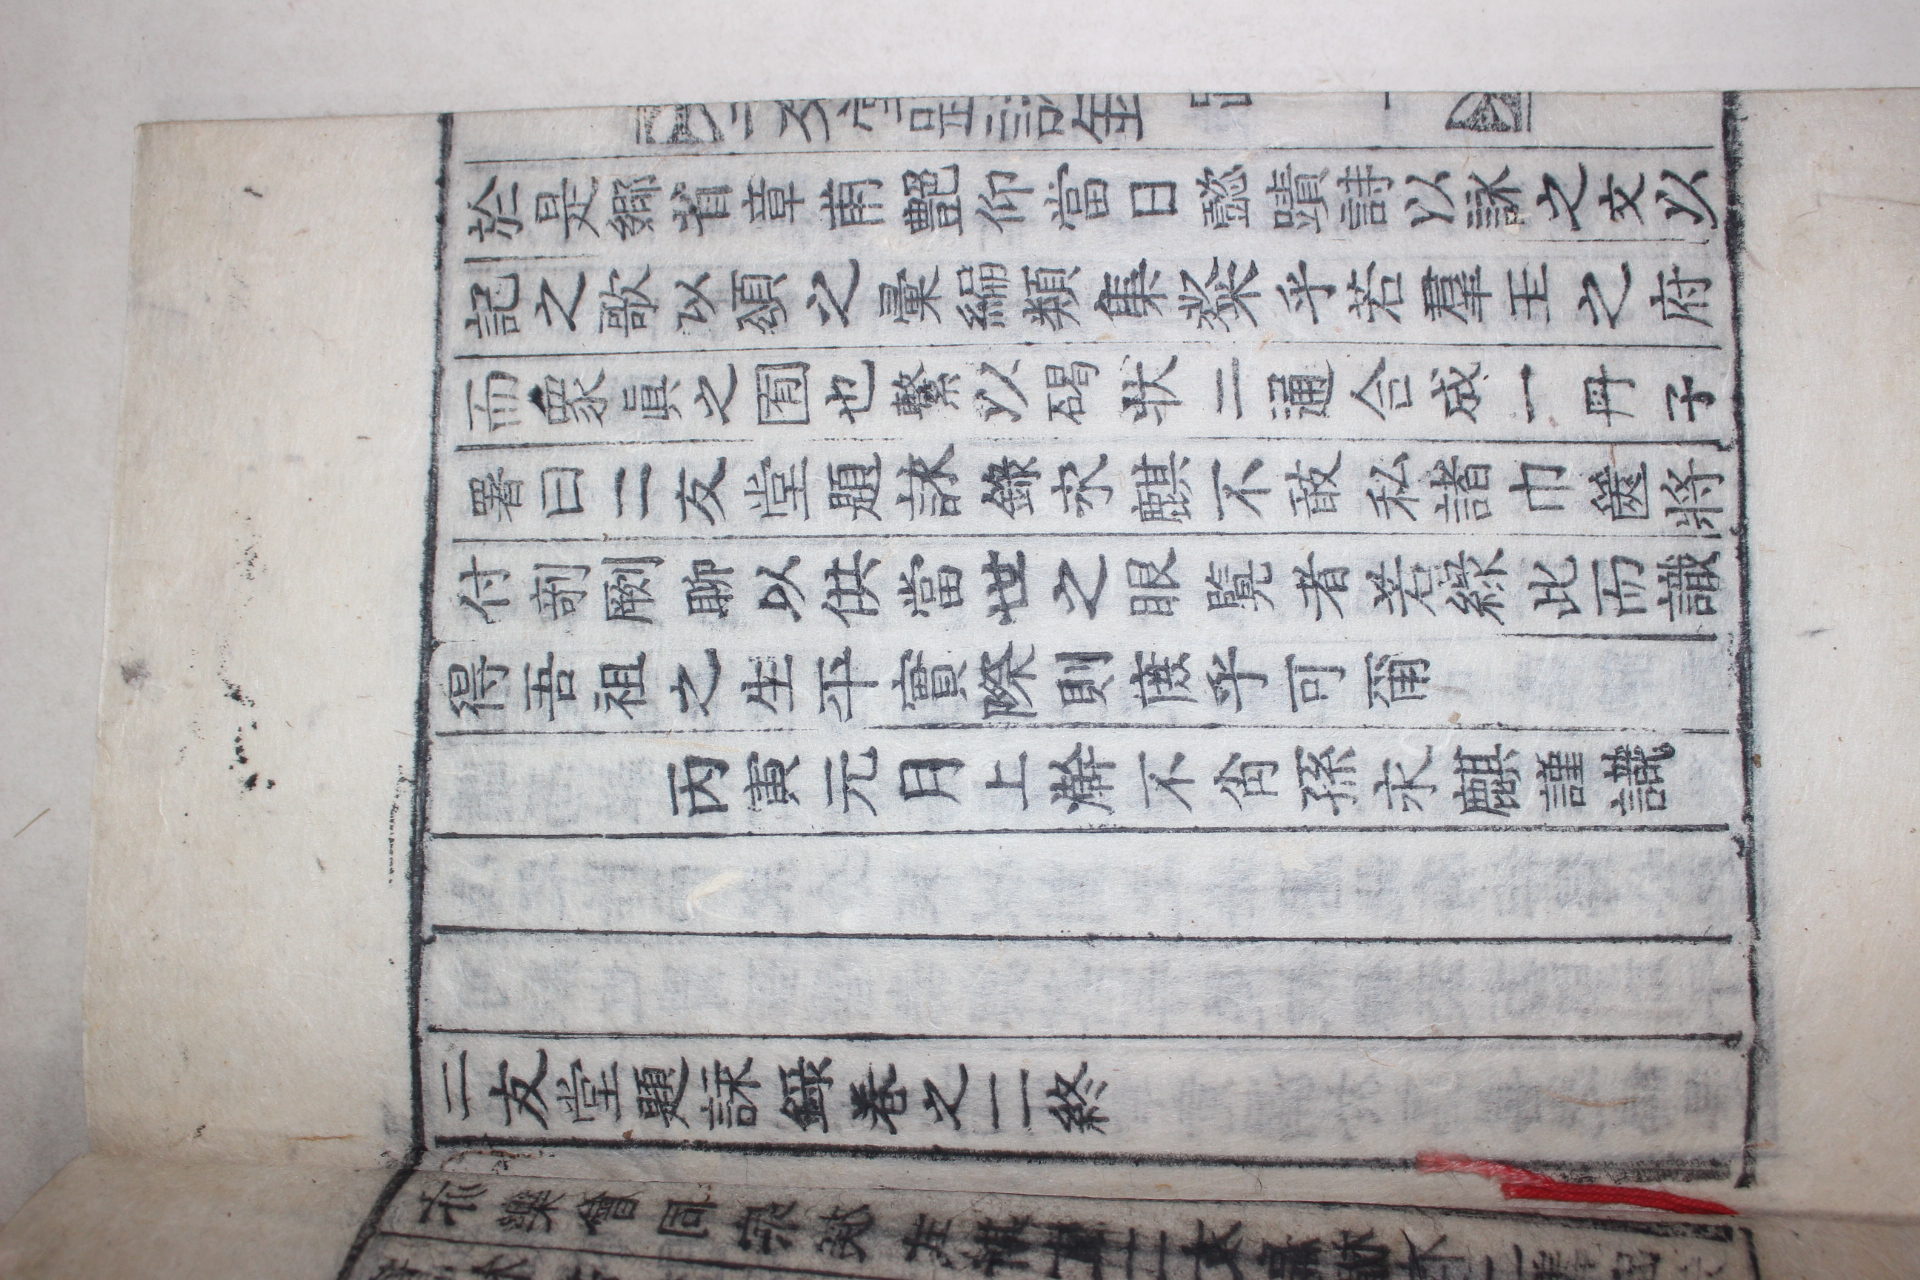 於是鄉省章甫艶仰當日懿蹟詩以詠之文以
記之歌以頌之彙編類集粲乎若羣玉之府
而衆眞之囿也繫以碣狀二通合成一冊子
署曰二友堂題詠錄永麒不敢私諸巾篋將
付剞劂聊以供當世之眼覽者若緣此而識
得吾祖之生平實際則庶乎可爾
丙寅元月上澣不肖孫永麒謹識
二友堂題詠錄卷之二終